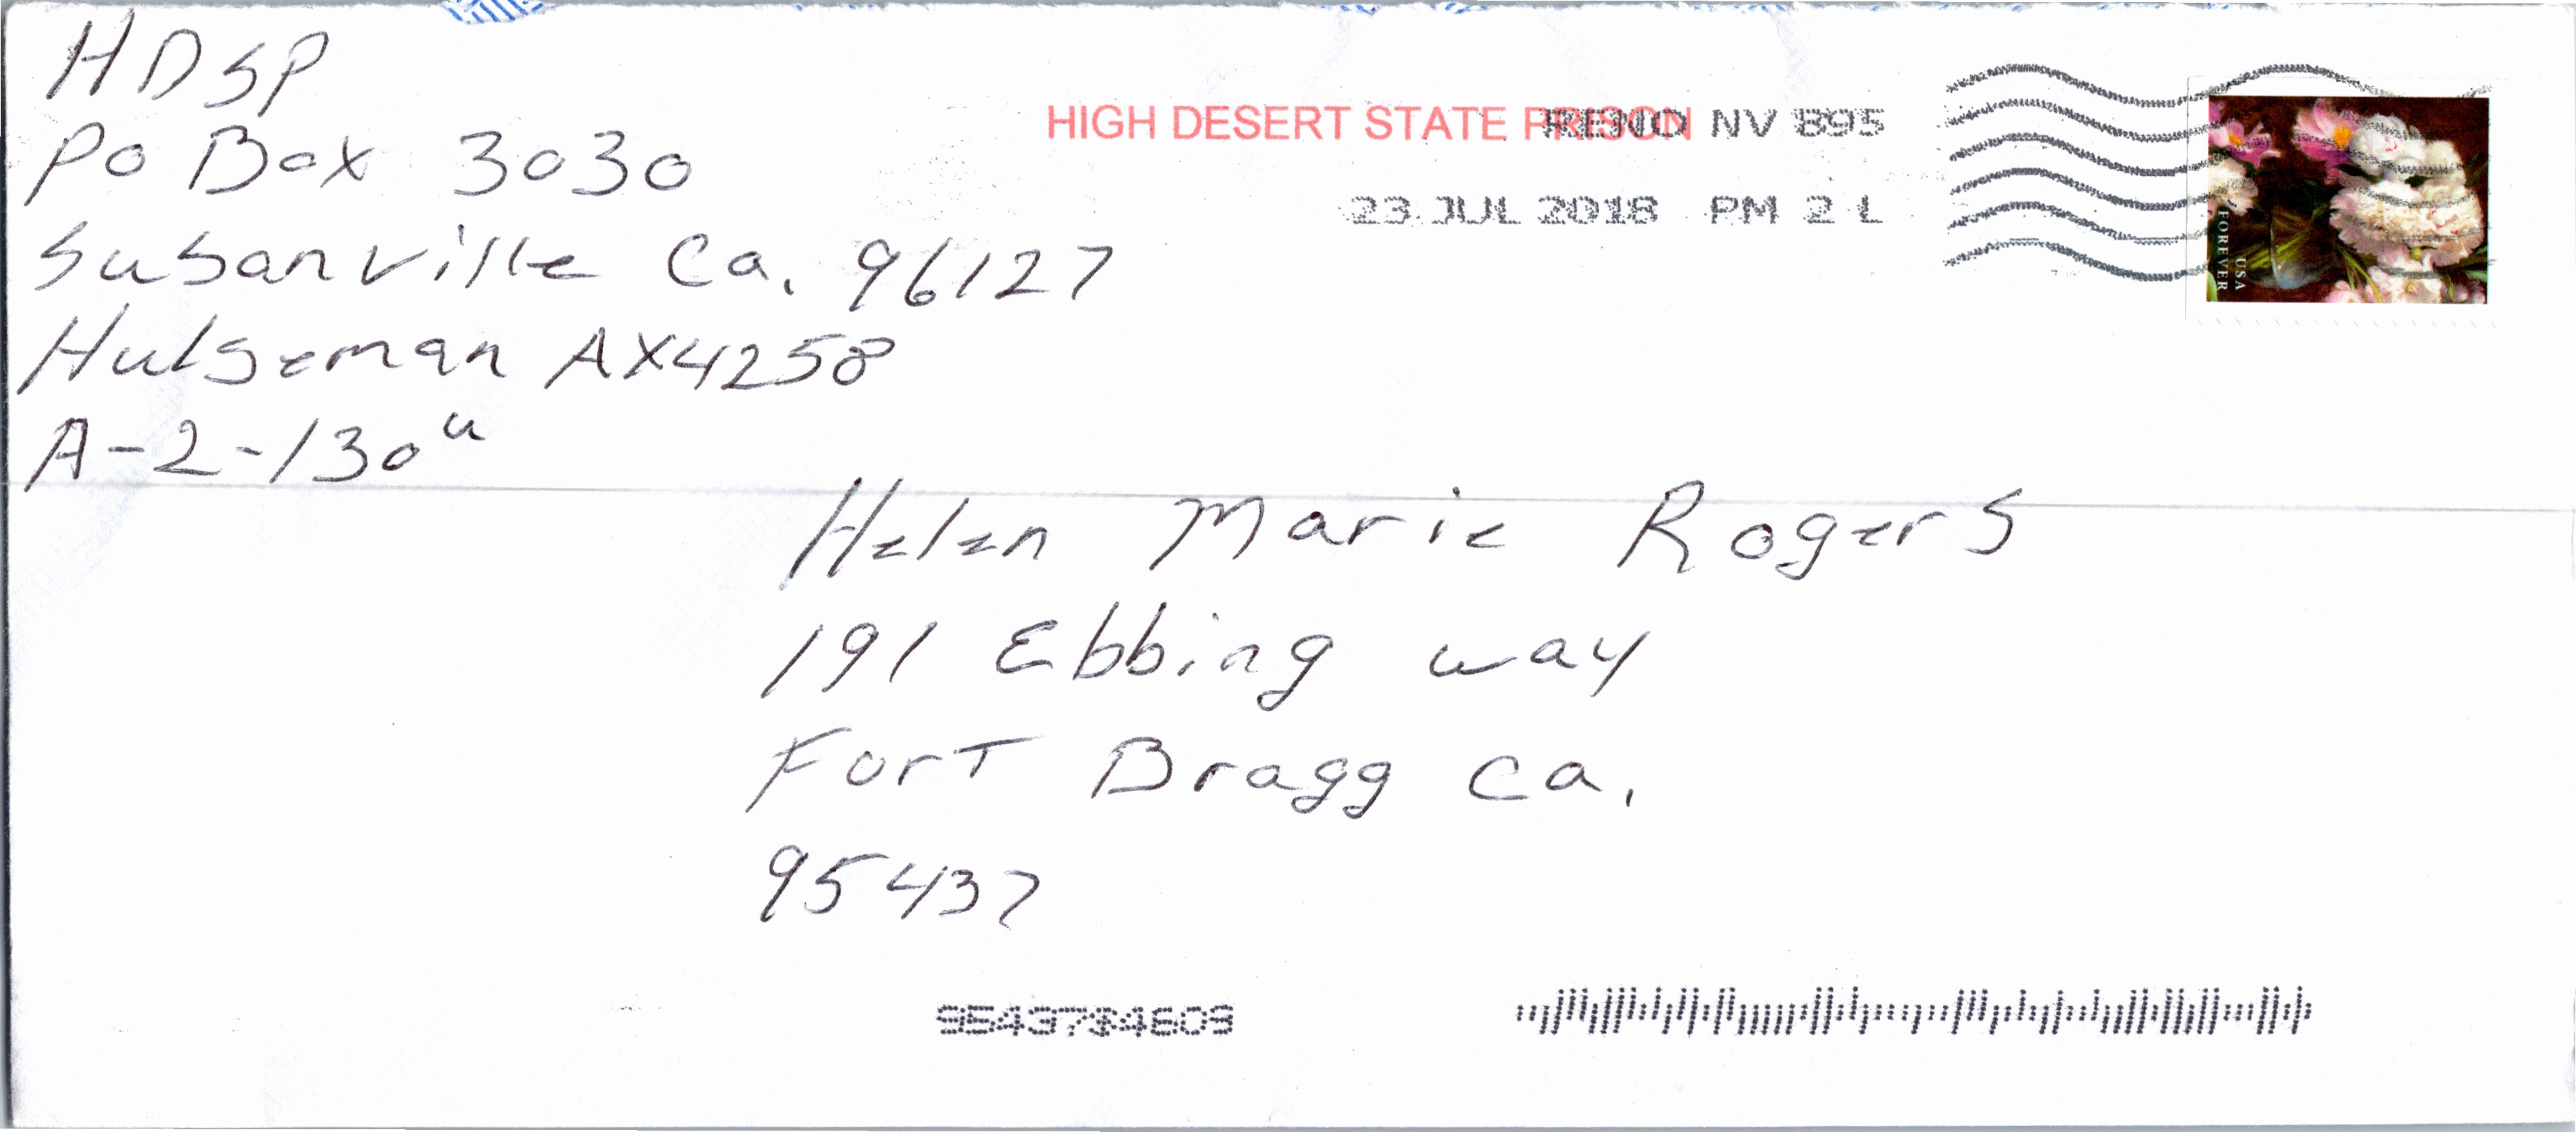 HDSP
PO Box 3030
Susanville Ca. 96127
Hulseman AX4258
A-2-130u
HIGH DESERT STATE PRISON
RENO NV 895
23 JUL 2018 PM 2 L
USA
FOREVER
Helen Marie Rogers
191 Ebbing way
Fort Bragg Ca.
95437